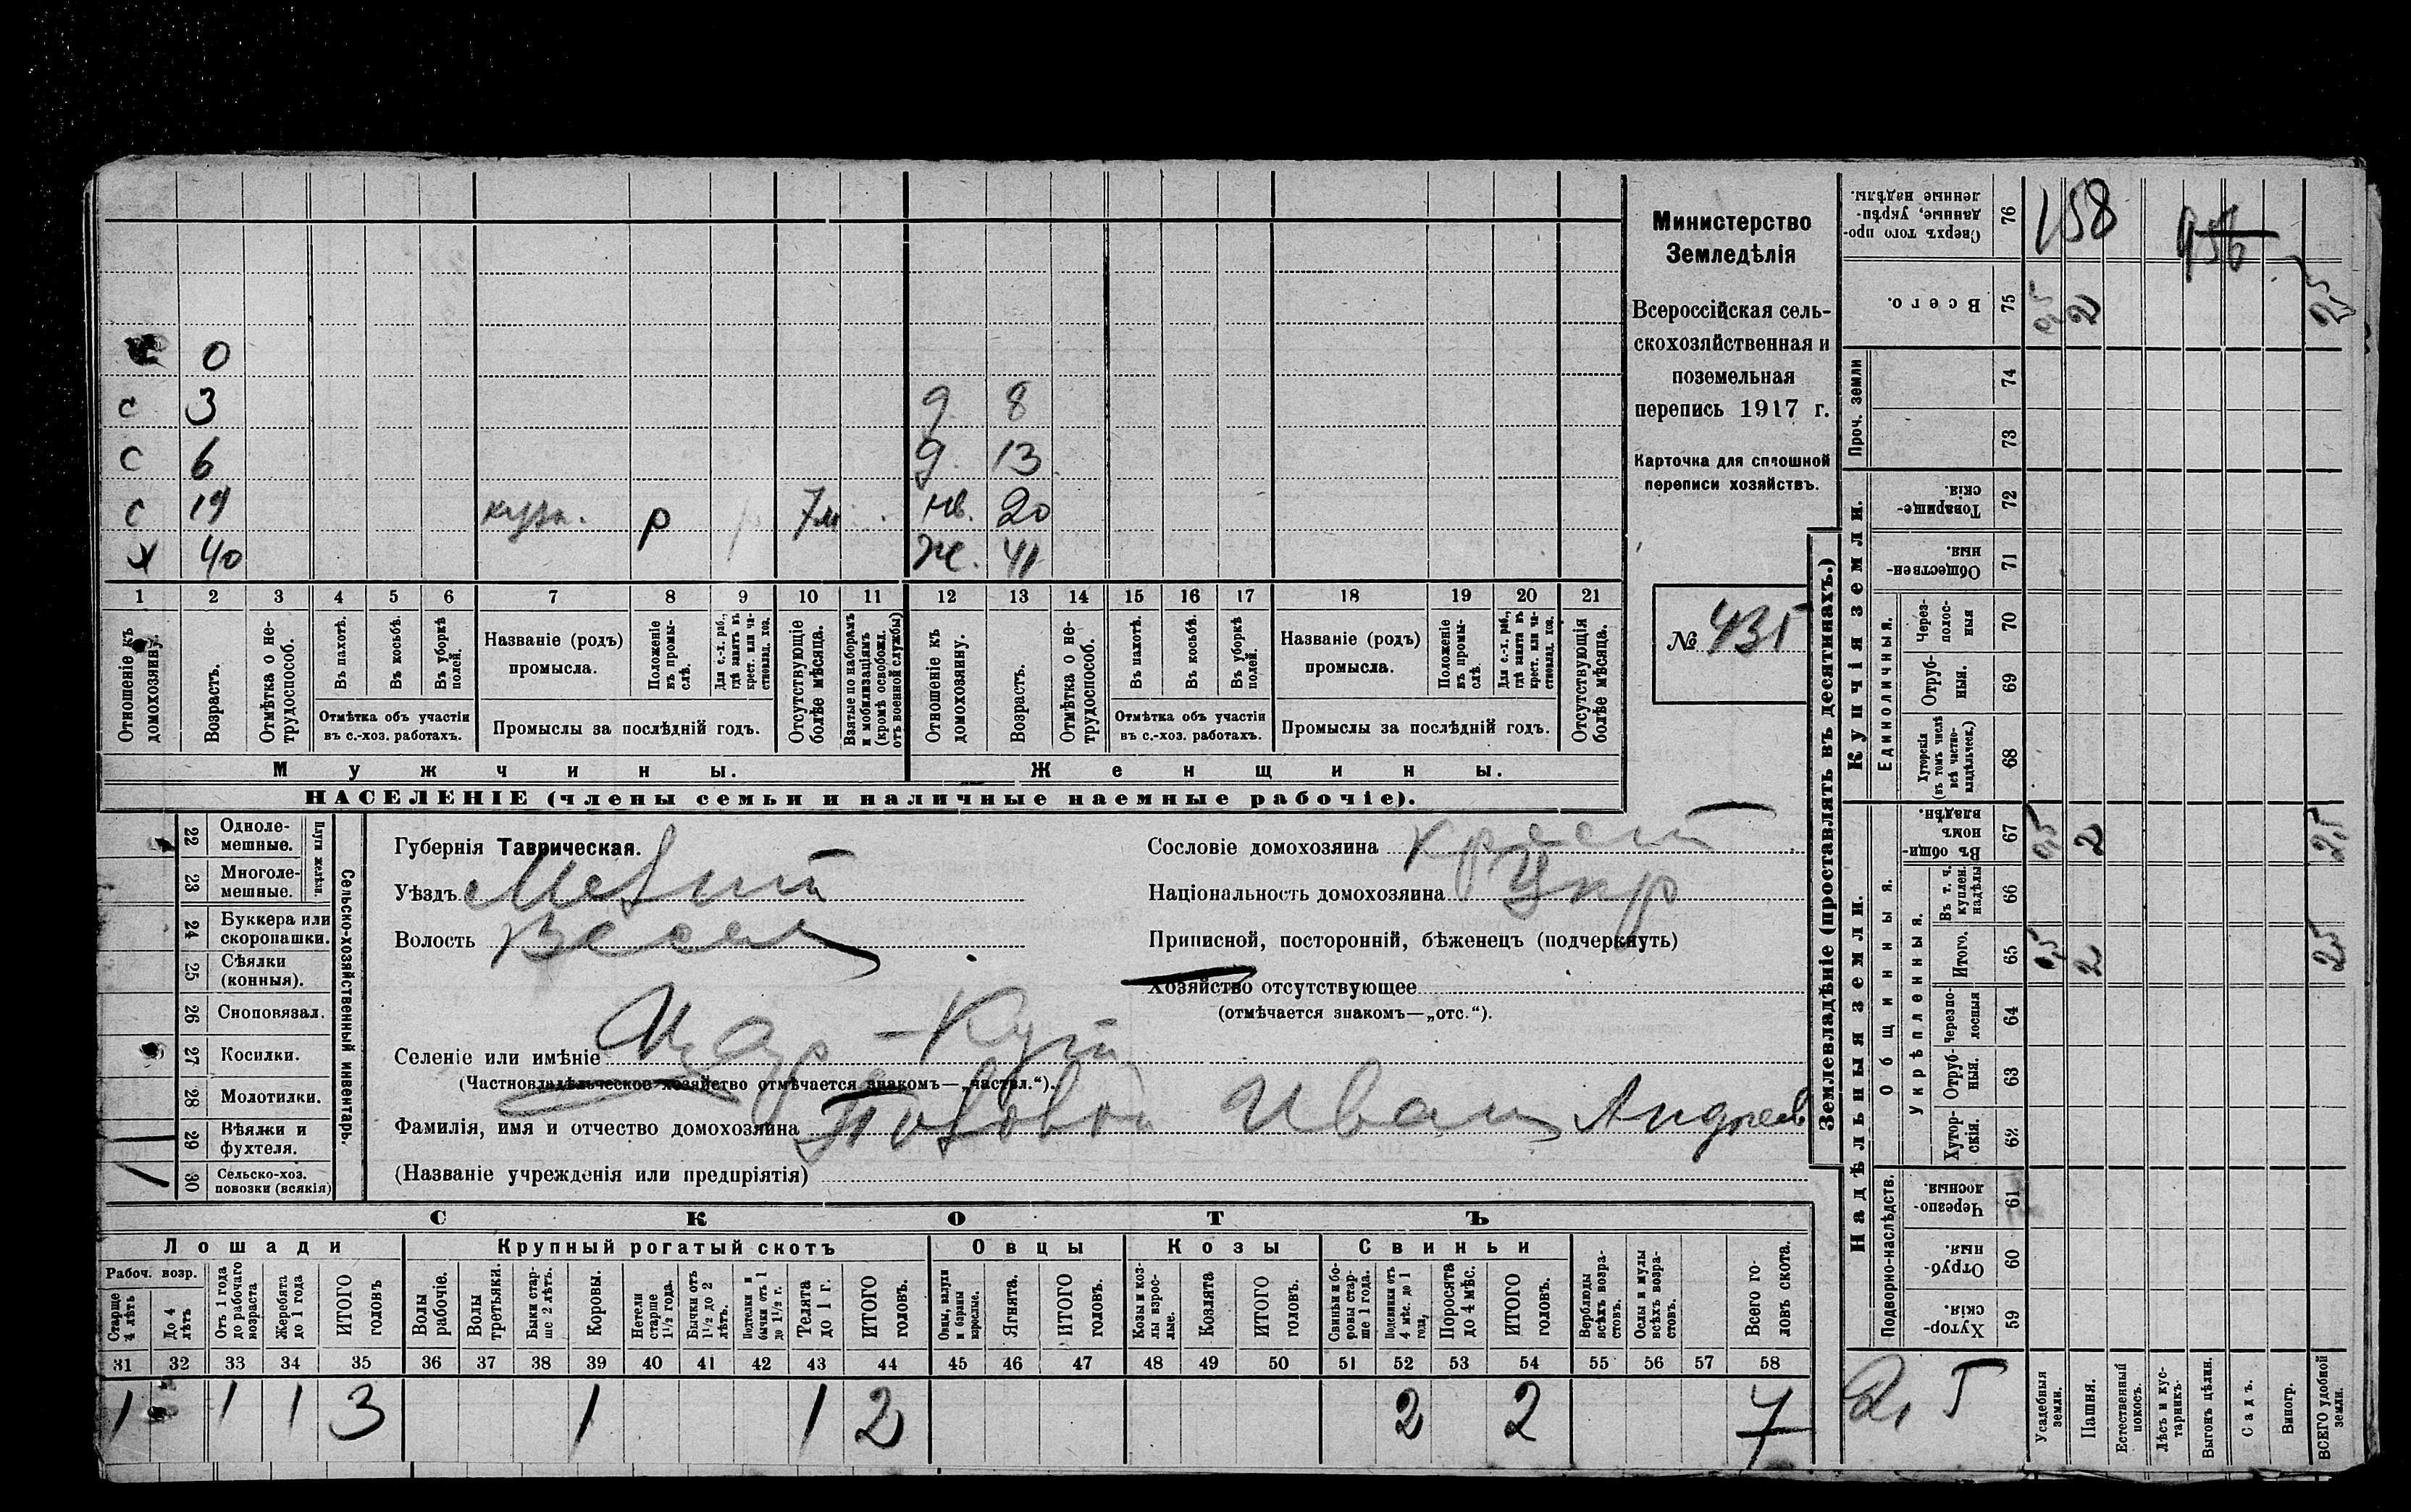 Министерство
Земледѣлія
Всероссійская сель-
скохозяйственная и
поземельная
перепись 1917 г.
Карточка для сплошной
переписи хозяйствъ.
№ 435
0
с 3 д. 8
с 6 д. 13
с 19 р 7м 20
х 40 ж. 41
1 2 3 4 5 6 7 8 9 10 11 12 13 14 15 16 17 18 19 20 21
Отношеніе къ домохозяину.
Возрастъ.
Отмѣтка о не-трудоспособ.
Въ пахотѣ.
Въ косьбѣ.
Въ уборкѣ полей.
Отмѣтка объ участіи
въ с.-хоз. работахъ.
Названіе (родъ)
промысла.
Положеніе въ промы-слѣ.
Для с.-х. раб., гдѣ занятъ въ крест. или ча-стновлад. хоз.
Промыслы за послѣдній годъ.
Отсутствующіе болѣе мѣсяца.
Взятые по наборамъ и мобилизаціямъ (кромѣ освобожд. отъ военной службы)
Отношеніе къ домохозяину.
Возрастъ.
Отмѣтка о не-трудоспособ.
Въ пахотѣ.
Въ косьбѣ.
Въ уборкѣ полей.
Отмѣтка объ участіи
въ с.-хоз. работахъ.
Названіе (родъ)
промысла.
Положеніе въ промы-слѣ.
Для с.-х. раб., гдѣ занята въ крест. или ча-стновлад. хоз.
Промыслы за послѣдній годъ.
Отсутствующія болѣе мѣсяца.
Мужчины.
Женщины.
НАСЕЛЕНІЕ (члены семьи и наличные наемные рабочіе).
Сельско-хозяйственный инвентарь.
Плуги желѣзн.
22 Одноле-мешные.
23 Многоле-мешные.
24 Буккера или скоропашки.
25 Сѣялки (конныя).
26 Сноповязал.
27 Косилки.
28 Молотилки.
29 Вѣялки и фухтеля.
30 Сельско-хоз. повозки (всякія)
Губернія Таврическая.
Уѣздъ
Волость
Селеніе или имѣніе
(Частновладѣльческое хозяйство отмѣчается знакомъ—„частвл.“).
Фамилія, имя и отчество домохозяина Иван Андреев
(Названіе учрежденія или предпріятія)
Сословіе домохозяина крест
Національность домохозяина Укр
Приписной, посторонній, бѣженецъ (подчеркнуть)
Хозяйство отсутствующее
(отмѣчается знакомъ—„отс.“).
СКОТЪ
Лошади
Крупный рогатый скотъ
Овцы
Козы
Свиньи
Рабоч. возр.
Старше 4 лѣтъ
До 4 лѣтъ
Отъ 1 года до рабочаго возраста
Жеребята до 1 года
ИТОГО головъ
Волы рабочіе.
Волы третьяки.
Быки стар-ше 2 лѣтъ.
Коровы.
Нетели старше 1½ года.
Бычки отъ 1½ до 2 лѣтъ.
Подтелки и бычки отъ 1 до 1½ г.
Телята до 1 г.
ИТОГО головъ.
Овцы, валухи и бараны взрослые.
Ягнята.
ИТОГО головъ.
Козы и коз-лы взрос-лые.
Козлята
ИТОГО головъ.
Свиньи и бо-ровы стар-ше 1 года.
Подсвинки отъ 4 мѣс. до 1 года,
Поросята до 4 мѣс.
ИТОГО головъ.
Верблюды всѣхъ возра-стовъ.
Ослы и мулы всѣхъ возра-стовъ.
Всего го-ловъ скота.
31 32 33 34 35 36 37 38 39 40 41 42 43 44 45 46 47 48 49 50 51 52 53 54 55 56 57 58
1 1 1 3 1 1 2 2 2 7
Землевладѣніе (проставлять въ десятинахъ.)
Купчія земли.
Надѣльныя земли.
Проч. земли
Единоличныя.
Общинныя.
Укрѣпленныя.
Подворно-наслѣдств.
76 Сверхъ того про-данные, укрѣп-ленные надѣлы.
158
956
75 Всего.
0,5 2 2,5
74
73
72 Товарище-скія.
71 Обществен-ныя.
70 Через-полос-ныя
69 Отруб-ныя.
68 Хуторскія (въ томъ числѣ всѣ частно-владѣльческ.)
67 Въ общи-номъ владѣн.
0,5 2 2,5
66 Въ т. ч. куплен. надѣлы
65 Итого.
0,5 2 2,5
64 Черезпо-лосныя
63 Отруб-ныя.
62 Хутор-скія.
61 Черезпо-лосныя.
60 Отруб-ныя.
59 Хутор-скія.
Усадебныя земли.
Пашня.
Естественный покосъ.
Лѣсъ и кус-тарникъ.
Выгонъ цѣлин.
Садъ.
Виногр.
ВСЕГО удобной земли.